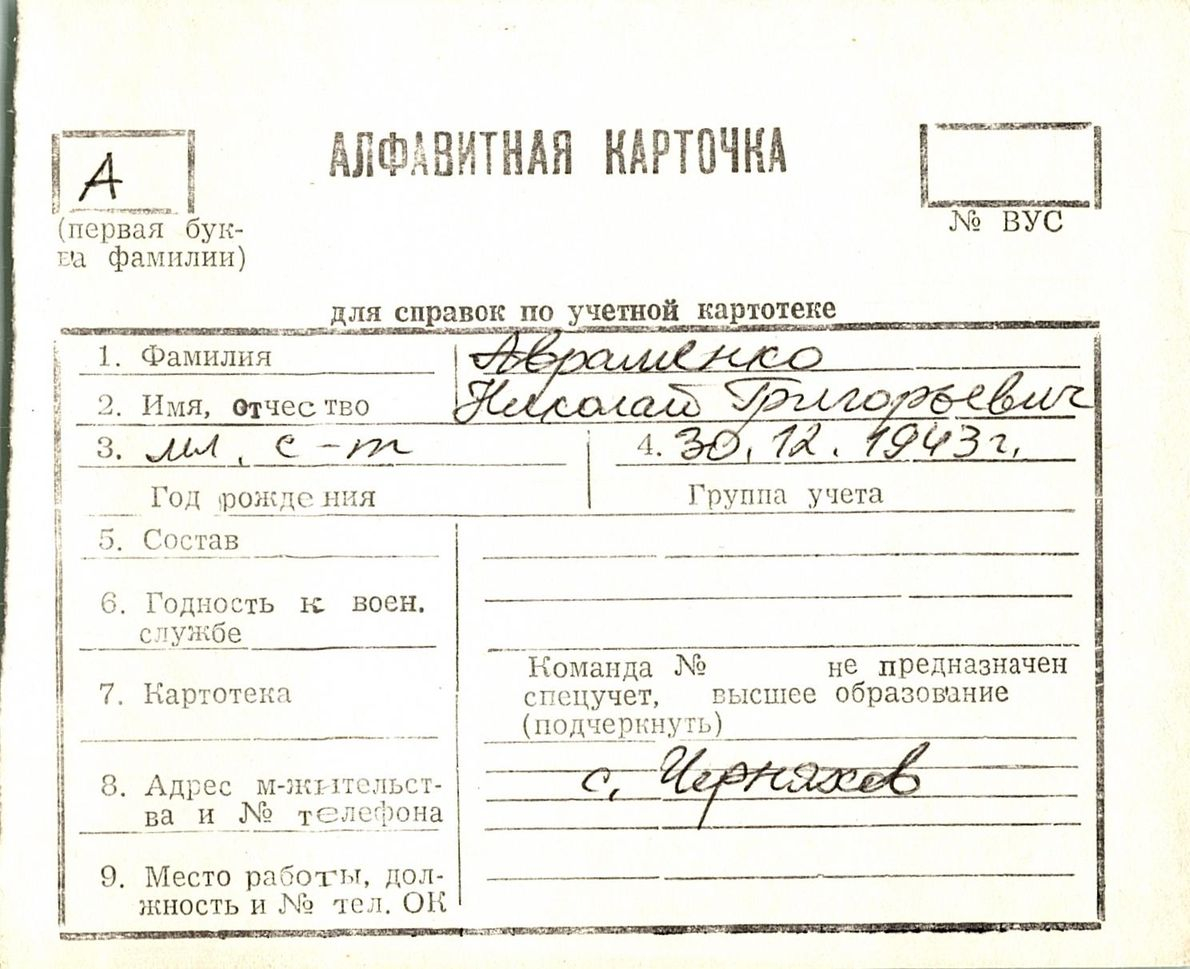 А
АЛФАВИТНАЯ КАРТОЧКА
(первая бук-
ва фамилии)
№ ВУС
для справок по учетной картотеке
1. Фамилия Авраменко
2. Имя, отчество Николай Григорьевич
3. мл. с-т 4. 30.12.1943 г.
Год рождения Группа учета
5. Состав
6. Годность к воен.
службе
7. Картотека
Команда № не предназначен
спецучет, высшее образование
(подчеркнуть)
8. Адрес м-жительст-
ва и № телефона
с. Черняхов
9. Место работы, дол-
жность и № тел. ОК